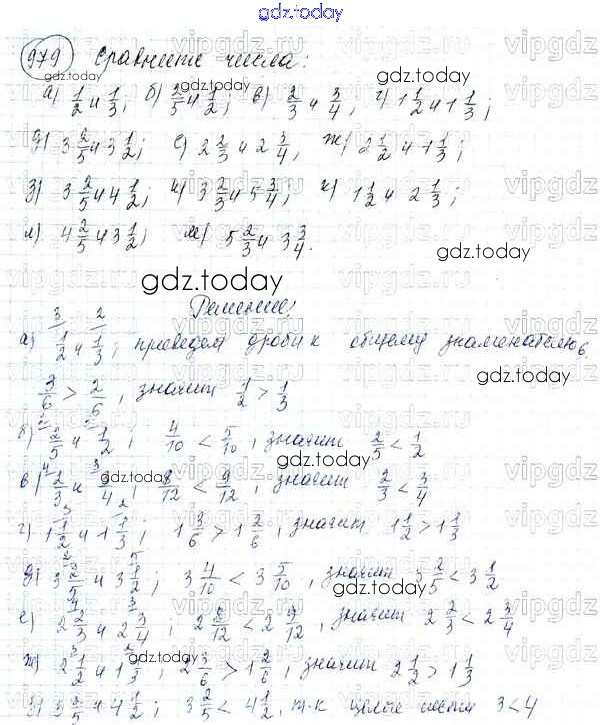 gdz.today
979 Сравните числа:
а) 1/2 и 1/3; б) 2/5 и 1/2; в) 2/3 и 3/4; г) 1 1/2 и 1 1/3;
д) 3 2/5 и 3 1/2; е) 2 2/3 и 2 3/4; ж) 2 1/2 и 1 1/3;
з) 3 2/5 и 4 1/2; и) 3 2/3 и 5 3/4; к) 1 1/2 и 2 1/3;
л) 4 2/5 и 3 1/2; м) 5 2/3 и 3 3/4.
gdz.today
Решение:
а) 1/2 и 1/3; приведем дроби к общему знаменателю 6
3/6 > 2/6, значит 1/2 > 1/3
б) 2/5 и 1/2; 4/10 < 5/10, значит 2/5 < 1/2
в) 2/3 и 3/4; 8/12 < 9/12, значит 2/3 < 3/4
г) 1 1/2 и 1 1/3; 1 3/6 > 1 2/6, значит 1 1/2 > 1 1/3
д) 3 2/5 и 3 1/2; 3 4/10 < 3 5/10, значит 3 2/5 < 3 1/2
е) 2 2/3 и 2 3/4; 2 8/12 < 2 9/12, значит 2 2/3 < 2 3/4
ж) 2 1/2 и 1 1/3; 2 3/6 > 1 2/6, значит 2 1/2 > 1 1/3
з) 3 2/5 и 4 1/2; 3 2/5 < 4 1/2, т.к целые части 3 < 4